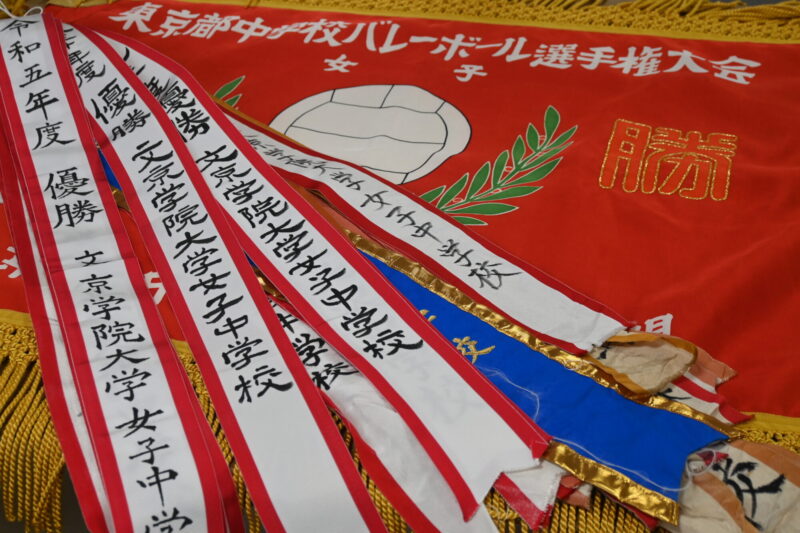 東京都中学校バレーボール選手権大会
女子
勝
令和五年度 優勝 文京学院大学女子中学
年度 優勝 文京学院大学女子中学校
優勝 文京学院大学女子中学校
学女子中学校
中学校
校